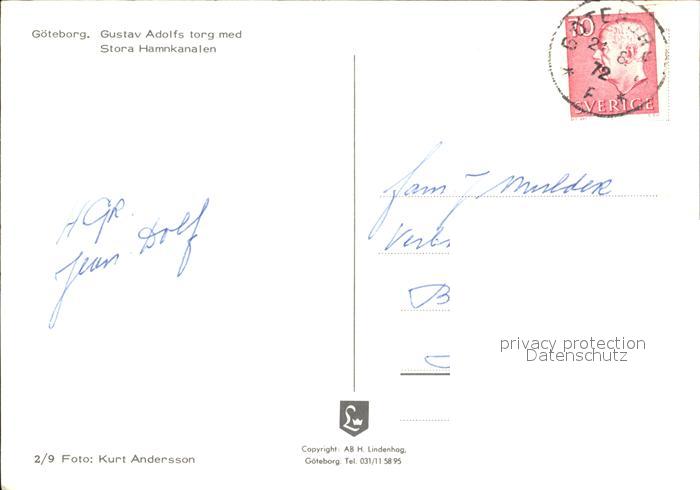 Göteborg. Gustav Adolfs torg med
Stora Hamnkanalen
GÖTEBORG
72
F
SVERIGE
fam J Mulder
B
HGr.
Jean Dolf
privacy protection
Datenschutz
L
2/9 Foto: Kurt Andersson
Copyright: AB H. Lindenhag,
Göteborg. Tel. 031/11 58 95